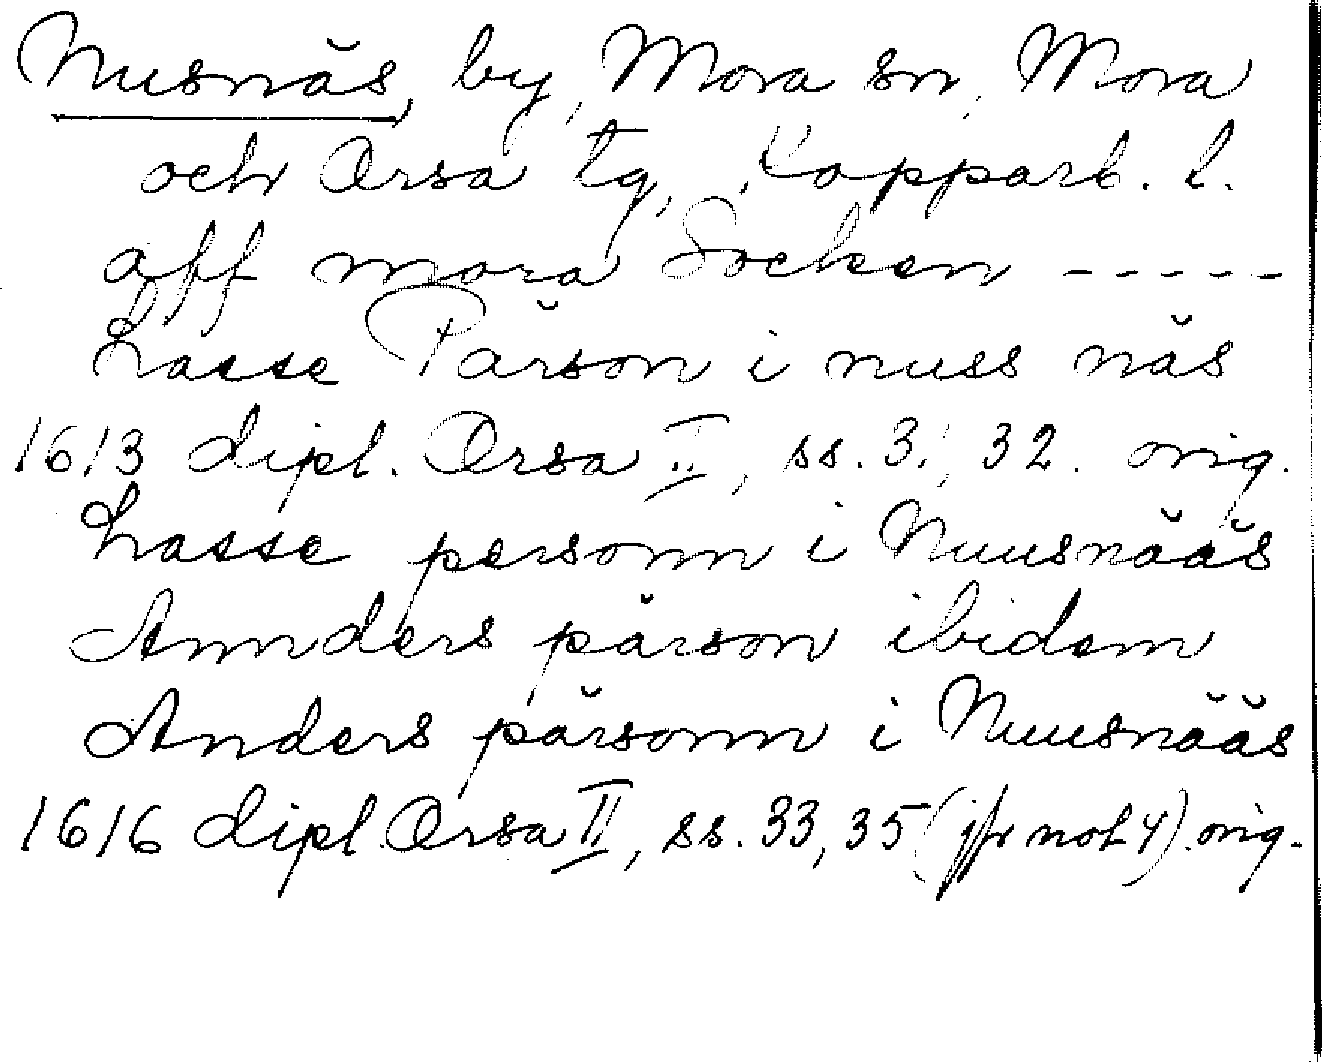 Nusnäs, by, Mora sn, Mora
och Orsa tg, Kopparb. l.
aff mora Socken -----
Lasse Pärson i nuss näs
1613 dipl. Orsa II, ss. 31, 32. orig.
Lasse personn i Nuusnääs
Annders pärson ibidem
Anders pärsonn i Nuusnääs
1616 dipl. Orsa II, ss. 33, 35 (jfr not 4). orig.